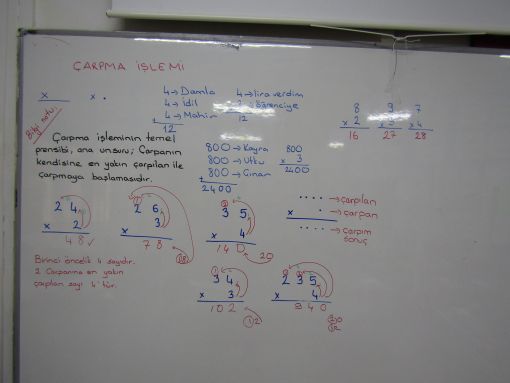 ÇARPMA İŞLEMİ
x
x .
Bilgi notu:
4 → Damla
4 → İdil
+ 4 → Mahir
12
4 → lira verdim
öğrenciye
12
8
x 2
16
9
27
7
x 4
28
Çarpma işleminin temel
prensibi, ana unsuru; Çarpanın
kendisine en yakın çarpılan ile
çarpmaya başlamasıdır.
800 → Kayra
800 → Utku
+ 800 → Çınar
2400
800
x 3
2400
.... → çarpılan
x . → çarpan
.... → çarpım
sonuç
24
x 2
48 ✓
26
x 3
78
18
35
x 4
140
20
Birinci öncelik 4 sayıdır.
2 Çarpanına en yakın
çarpılan sayı 4'tür.
34
x 3
102
12
235
x 4
940